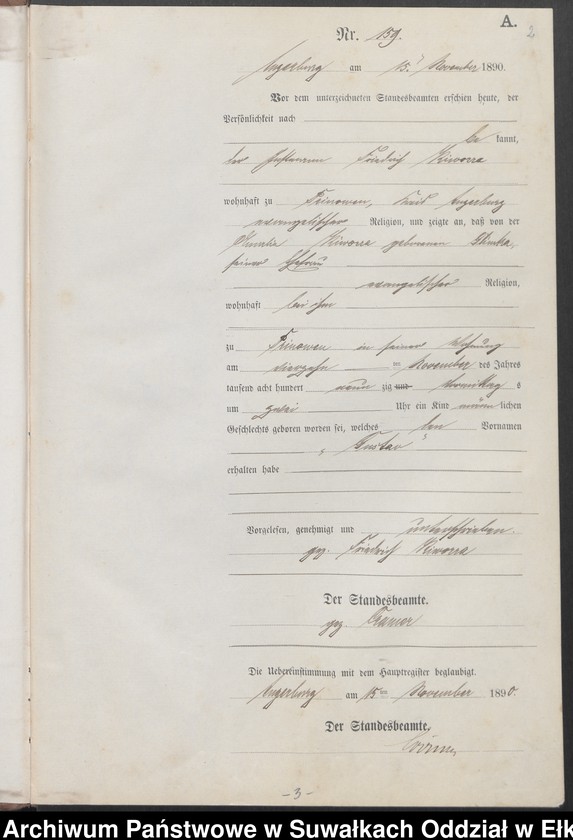 A.
2
Nr. 159.
Angerburg am 15. November 1890.
Vor dem unterzeichneten Standesbeamten erschien heute, der
Persönlichkeit nach
be kannt,
der Friedrich Kiworra
wohnhaft zu Prinowen, Kreis Angerburg
evangelischer Religion, und zeigte an, daß von der
Amalia Kiworra geborenen
seiner Ehefrau
evangelischer Religion,
wohnhaft bei ihm
zu Prinowen in seiner Wohnung
am vierzehn ten November des Jahres
tausend acht hundert neun zig und Vormittag s
um zwei Uhr ein Kind männ lichen
Geschlechts geboren worden sei, welches den Vornamen
„Gustav"
erhalten habe
Vorgelesen, genehmigt und unterschrieben.
gez. Friedrich Kiworra
Der Standesbeamte.
gez.
Die Uebereinstimmung mit dem Hauptregister beglaubigt.
Angerburg am 15ten November 1890.
Der Standesbeamte.
-3-
Archiwum Państwowe w Suwałkach Oddział w Ełk